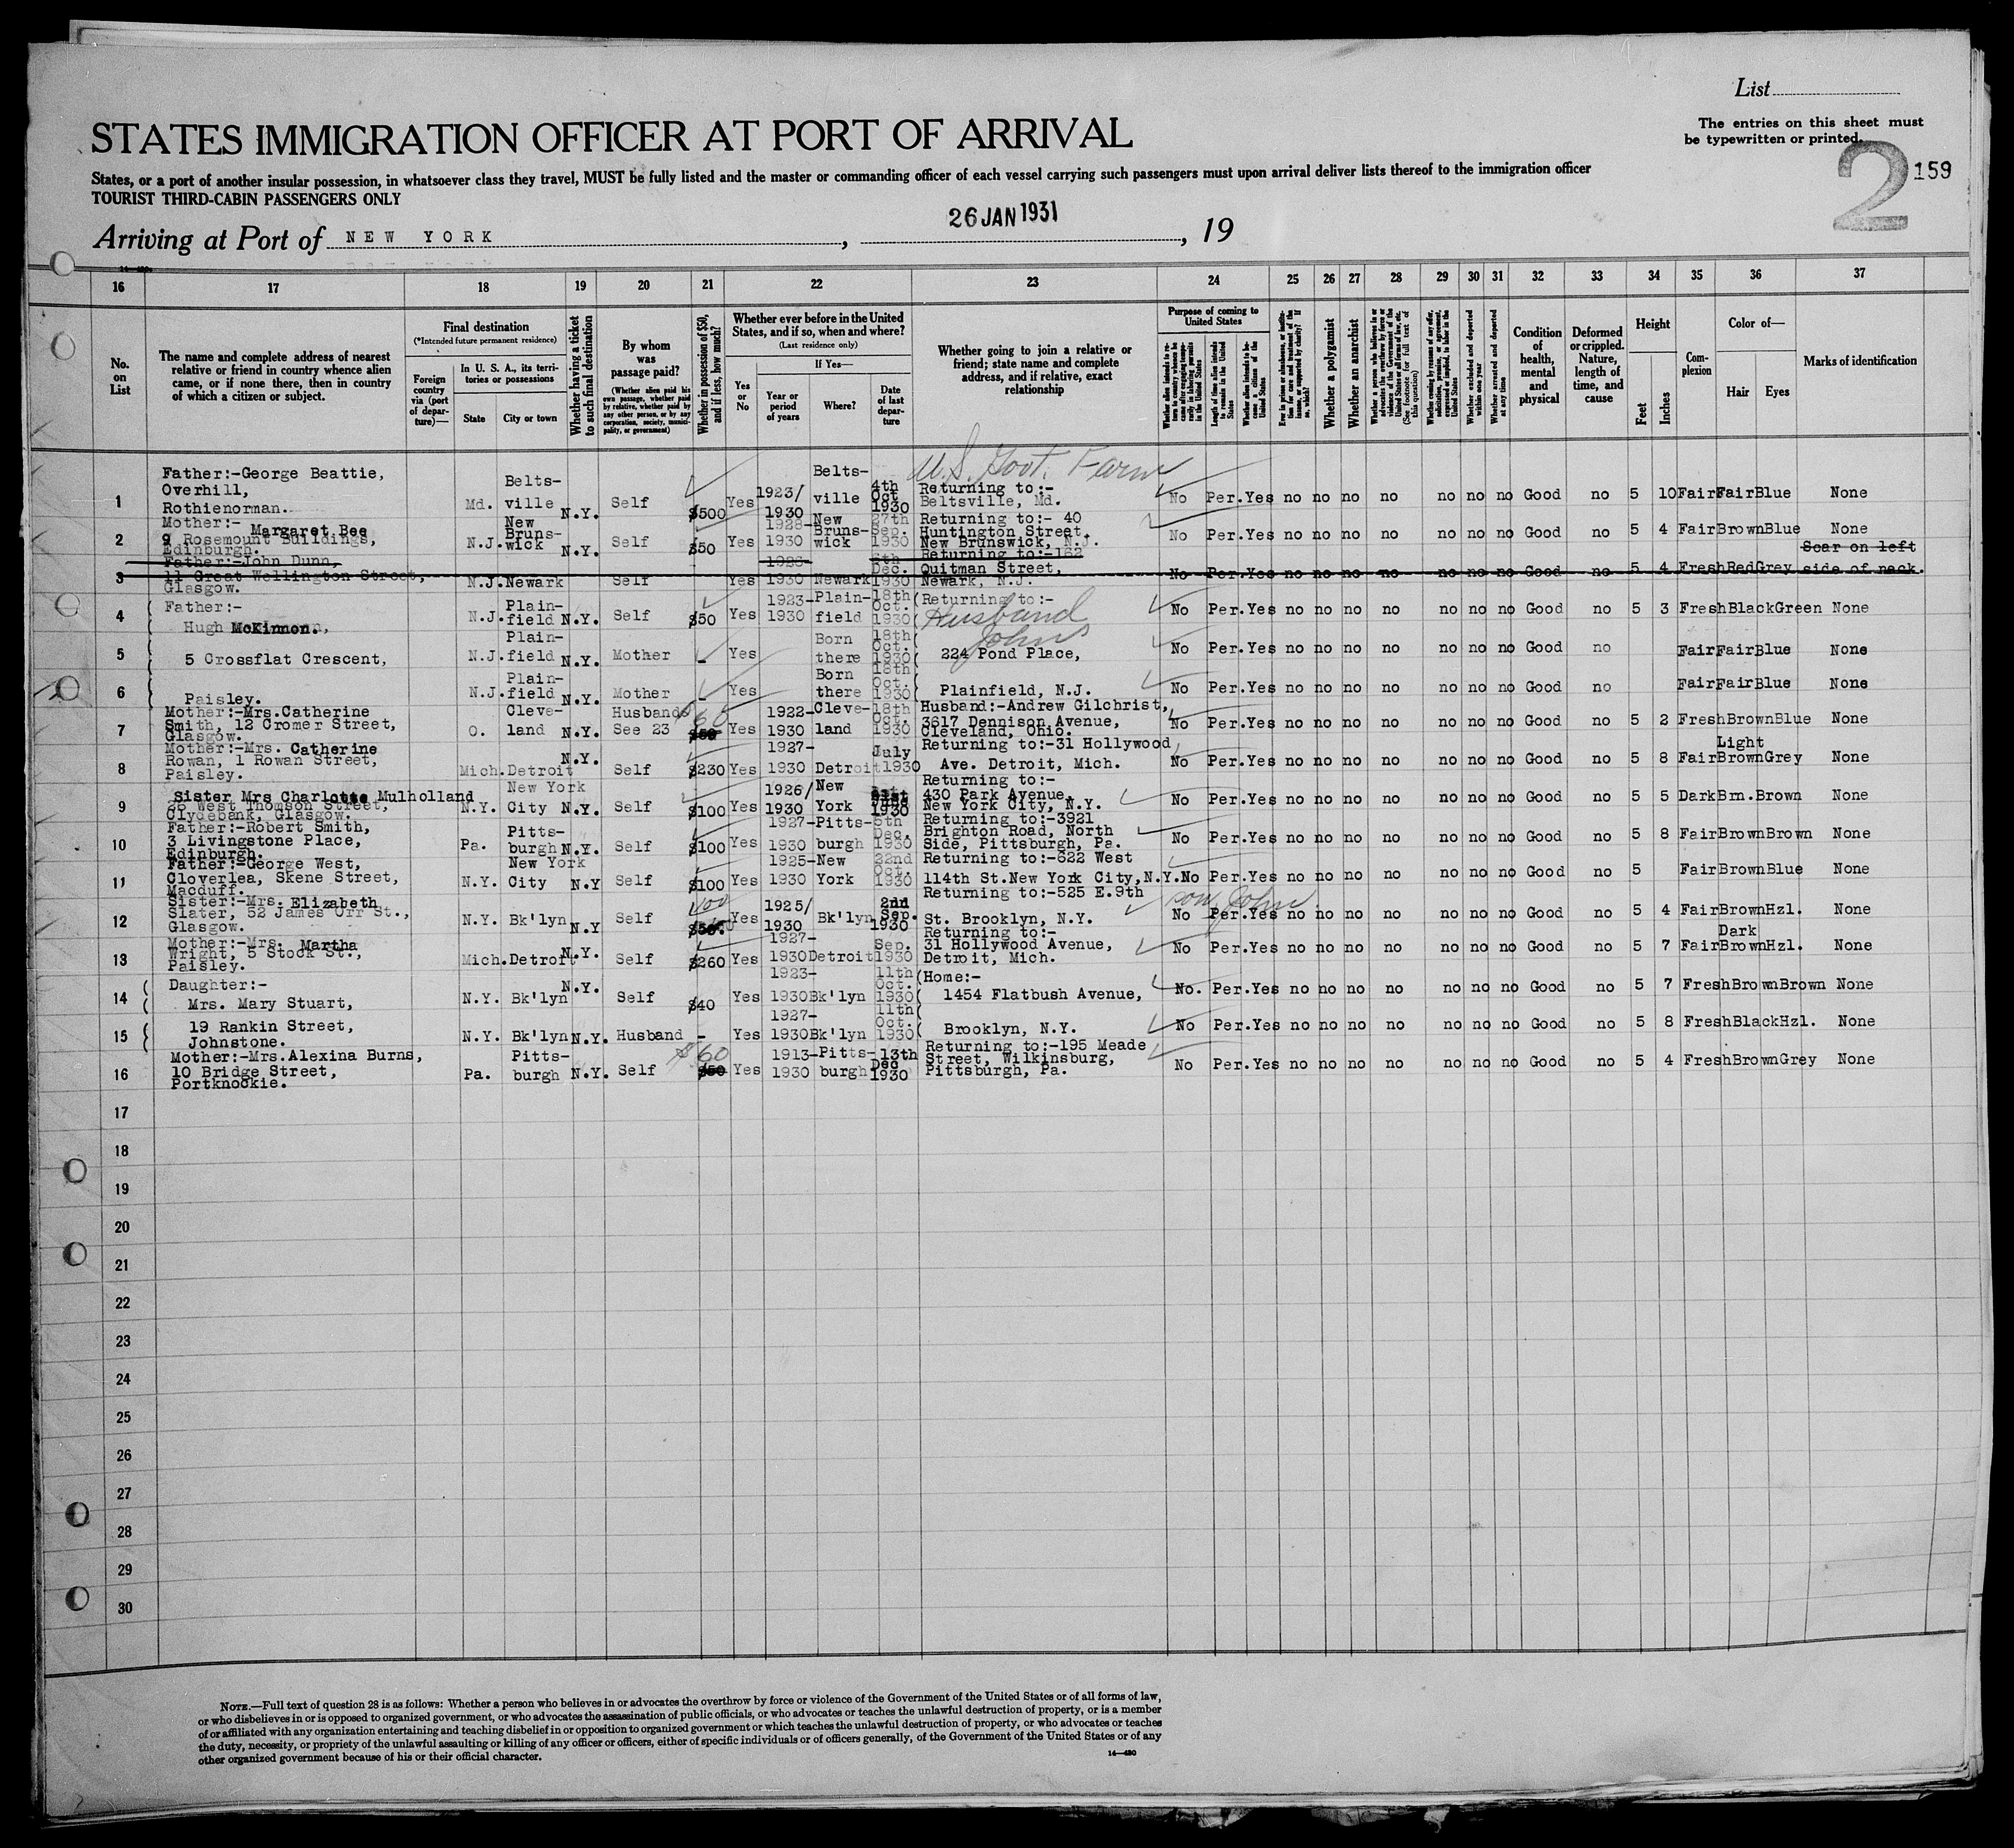 List
The entries on this sheet must
be typewritten or printed.
2 159
STATES IMMIGRATION OFFICER AT PORT OF ARRIVAL
States, or a port of another insular possession, in whatsoever class they travel, MUST be fully listed and the master or commanding officer of each vessel carrying such passengers must upon arrival deliver lists thereof to the immigration officer
TOURIST THIRD-CABIN PASSENGERS ONLY
Arriving at Port of NEW YORK, 26 JAN 1931, 19
16 17 18 19 20 21 22 23 24 25 26 27 28 29 30 31 32 33 34 35 36 37
No. on List
The name and complete address of nearest relative or friend in country whence alien came, or if none there, then in country of which a citizen or subject.
Final destination
(*Intended future permanent residence)
Foreign country via (port of departure)—
In U. S. A., its territories or possessions
State City or town
Whether having a ticket to such final destination
By whom was passage paid?
(Whether alien paid his own passage, whether paid by relative, whether paid by any other person, or by any corporation, society, municipality, or government)
Whether in possession of $50, and if less, how much?
Whether ever before in the United States, and if so, when and where?
(Last residence only)
Yes or No
If Yes—
Year or period of years Where? Date of last departure
Whether going to join a relative or friend; state name and complete address, and if relative, exact relationship
Purpose of coming to United States
Length of time alien intends to remain in the United States
Whether alien intends to become a citizen of the United States
Whether a polygamist
Whether an anarchist
Whether excluded and deported within one year
Whether arrested and deported at any time
Condition of health, mental and physical
Deformed or crippled. Nature, length of time, and cause
Height
Feet Inches
Complexion
Color of—
Hair Eyes
Marks of identification
1 Father:-George Beattie, Overhill, Rothienorman. Md. Beltsville N.Y. Self $500 Yes 1923/1930 Beltsville 4th Oct 1930 U.S. Govt. Farm Returning to:- Beltsville, Md. No Per. Yes no no no no no no no Good no 5 10 Fair Fair Blue None
2 Mother:- Margaret Bee 9 Rosemount Buildings, Edinburgh. N.J. New Brunswick N.Y. Self $50 Yes 1928-1930 New Brunswick 27th Sep. 1930 Returning to:- 40 Huntington Street, New Brunswick, N.J. No Per. Yes no no no no no no no Good no 5 4 Fair Brown Blue None
3 Father:-John Dunn, 11 Great Wellington Street, Glasgow. N.J. Newark Self Yes 1930 Newark 6th Dec. 1930 Returning to:-162 Quitman Street, Newark, N.J. No Per. Yes no no no no no no no Good no 5 4 Fresh Red Grey Scar on left side of neck.
4 Father:- Hugh McKinnon., N.J. Plainfield N.Y. Self $50 Yes 1923-1930 Plainfield 18th Oct. 1930 Returning to:- Husband John No Per. Yes no no no no no no no Good no 5 3 Fresh Black Green None
5 5 Crossflat Crescent, N.J. Plainfield N.Y. Mother - Yes Born there 18th Oct. 1930 224 Pond Place, No Per. Yes no no no no no no no Good no Fair Fair Blue None
6 Paisley. N.J. Plainfield N.Y. Mother - Yes Born there 18th Oct. 1930 Plainfield, N.J. No Per. Yes no no no no no no no Good no Fair Fair Blue None
7 Mother:-Mrs.Catherine Smith, 12 Cromer Street, Glasgow. O. Cleveland N.Y. Husband See 23 $60 $50 Yes 1922-1930 Cleveland 18th Oct. 1930 Husband:-Andrew Gilchrist, 3617 Dennison Avenue, Cleveland, Ohio. No Per. Yes no no no no no no no Good no 5 2 Fresh Brown Blue None
8 Mother:-Mrs. Catherine Rowan, 1 Rowan Street, Paisley. Mich. Detroit N.Y. Self $230 Yes 1927-1930 Detroit July 1930 Returning to:-31 Hollywood Ave. Detroit, Mich. No Per. Yes no no no no no no no Good no 5 8 Fair Light Brown Grey None
9 Sister Mrs Charlotte Mulholland 26 West Thomson Street, Clydebank, Glasgow. N.Y. New York City N.Y. Self $100 Yes 1926/1930 New York 1930 Returning to:- 430 Park Avenue, New York City, N.Y. No Per. Yes no no no no no no no Good no 5 5 Dark Brn. Brown None
10 Father:-Robert Smith, 3 Livingstone Place, Edinburgh. Pa. Pittsburgh N.Y. Self $100 Yes 1927-1930 Pittsburgh 5th Dec. 1930 Returning to:-3921 Brighton Road, North Side, Pittsburgh, Pa. No Per. Yes no no no no no no no Good no 5 8 Fair Brown Brown None
11 Father:-George West, Cloverlea, Skene Street, Macduff. N.Y. New York City N.Y Self $100 Yes 1925-1930 New York 22nd Oct. 1930 Returning to:-622 West 114th St.New York City,N.Y. No Per. Yes no no no no no no no Good no 5 Fair Brown Blue None
12 Sister:-Mrs. Elizabeth Slater, 52 James Orr St., Glasgow. N.Y. Bk'lyn N.Y Self 100 $50. Yes 1925/1930 Bk'lyn 2nd Sep. 1930 Returning to:-525 E.9th St. Brooklyn, N.Y. son, John No Per. Yes no no no no no no no Good no 5 4 Fair Brown Hzl. None
13 Mother:-Mrs. Martha Wright, 5 Stock St., Paisley. Mich. Detroit N.Y. Self $260 Yes 1927-1930 Detroit Sep. 1930 Returning to:- 31 Hollywood Avenue, Detroit, Mich. No Per. Yes no no no no no no no Good no 5 7 Fair Dark Brown Hzl. None
14 Daughter:- Mrs. Mary Stuart, N.Y. Bk'lyn N.Y. Self $40 Yes 1923-1930 Bk'lyn 11th Oct. 1930 Home:- 1454 Flatbush Avenue, No. Per. Yes no no no no no no no Good no 5 7 Fresh Brown Brown None
15 19 Rankin Street, Johnstone. N.Y. Bk'lyn N.Y. Husband - Yes 1927-1930 Bk'lyn 11th Oct. 1930 Brooklyn, N.Y. No Per. Yes no no no no no no no Good no 5 8 Fresh Black Hzl. None
16 Mother:-Mrs.Alexina Burns, 10 Bridge Street, Portknockie. Pa. Pittsburgh N.Y. Self $60 $50 Yes 1913-1930 Pittsburgh 13th Dec 1930 Returning to:-195 Meade Street, Wilkinsburg, Pittsburgh, Pa. No Per. Yes no no no no no no no Good no 5 4 Fresh Brown Grey None
17
18
19
20
21
22
23
24
25
26
27
28
29
30
NOTE.—Full text of question 28 is as follows: Whether a person who believes in or advocates the overthrow by force or violence of the Government of the United States or of all forms of law,
or who disbelieves in or is opposed to organized government, or who advocates the assassination of public officials, or who advocates or teaches the unlawful destruction of property, or is a member
of or affiliated with any organization entertaining and teaching disbelief in or opposition to organized government or which teaches the unlawful destruction of property, or who advocates or teaches
the duty, necessity, or propriety of the unlawful assaulting or killing of any officer or officers, either of specific individuals or of officers generally, of the Government of the United States or of any
other organized government because of his or their official character.
14—430